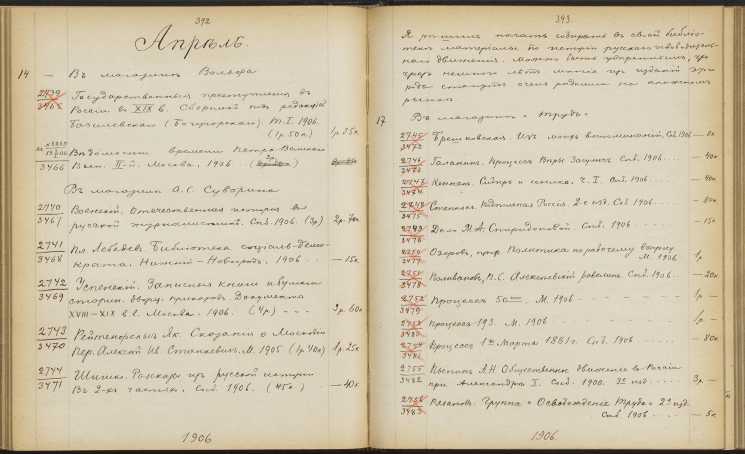 392
Апрѣль.
14 — Въ магазинѣ Вольфа
2739
3465
Государственныя преступленія въ
Россіи въ XIX в. Сборникъ подъ редакціей
Базилевскаго (Богучарскаго). Т. I. 1906.
(1р. 50к.) 1р. 25к.
3466
Вѣдомости времени Петра Великаго
Вып. II-й. Москва. 1906.
Въ магазинѣ А. С. Суворина
2740
3467
Военскій. Отечественная
русской журналистикѣ. Спб. 1906. (3р) 2р. 70к.
2741
3468
Пл. Лебедевъ. Библиотека соціалъ-демо-
крата. Нижній-Новгородъ. 1906. — 15к.
2742
3469
Успенскій. Записныя книги и бумаги
старин. дворц. приказовъ. Документы
XVIII–XIX в.в. Москва. 1906. (4р) - - - 3р. 60к
2743
3470
Рейтенфельсъ Як. Сказанія о Московіи
Пер. Алексѣй Ив. Станкевичъ. М. 1905 (1р. 40к) 1р. 25к
2744
3471
Шишко. Разсказы изъ русской исторіи
Въ 2-хъ частяхъ. Спб. 1906. (45к.) — 40к
1906
393
Я рѣшилъ начать собирать въ своей библіо-
текѣ матеріалы по исторіи русскаго освободитель-
наго движенія. Можно быть увѣреннымъ, что
чрезъ немного лѣтъ многія изъ изданій
станутъ очень рѣдкими на книжномъ
рынкѣ.
17 Въ магазинѣ «Трудъ».
2745
3472
Брешковская. Изъ моихъ воспоминаній. Спб. 1906 — 8к
2746
3473
Процессъ Вѣры Засуличъ. Спб. 1906 . . . — 40к
2747
3474
Кеннанъ. Сибирь и ссылка. Ч. I. Спб. 1906. — 40к
2748
3475
Степнякъ. Подпольная Россія. 2-е изд. Спб. 1906 — 80к
2749
3476
Дѣло М. А. Спиридоновой. Спб. 1906 . . . — 15к
2750
3477
Озеровъ, проф. Политика по рабочему вопросу
М. 1906 1р
2751
3478
Поливановъ, П. С. Алексѣевскій равелинъ. Спб. 1906 . . — 20к
2752
3479
Процессъ 50-ти. М. 1906 - - - - 1р —
2753
3480
Процессъ 193. М. 1906 - - - - 1р —
2754
3481
Процессъ 1го Марта 1881г. Спб. 1906 - - - — 80к
2755
3482
Пыпинъ А.Н. Общественное движеніе въ Россіи
при Александрѣ I. Спб. 1900. 3е изд . . . 3р. —
2756
3483
Рязановъ. Группа «Освобожденіе Труда» 2е изд.
Спб. 1906 - - - — 5к
1906.